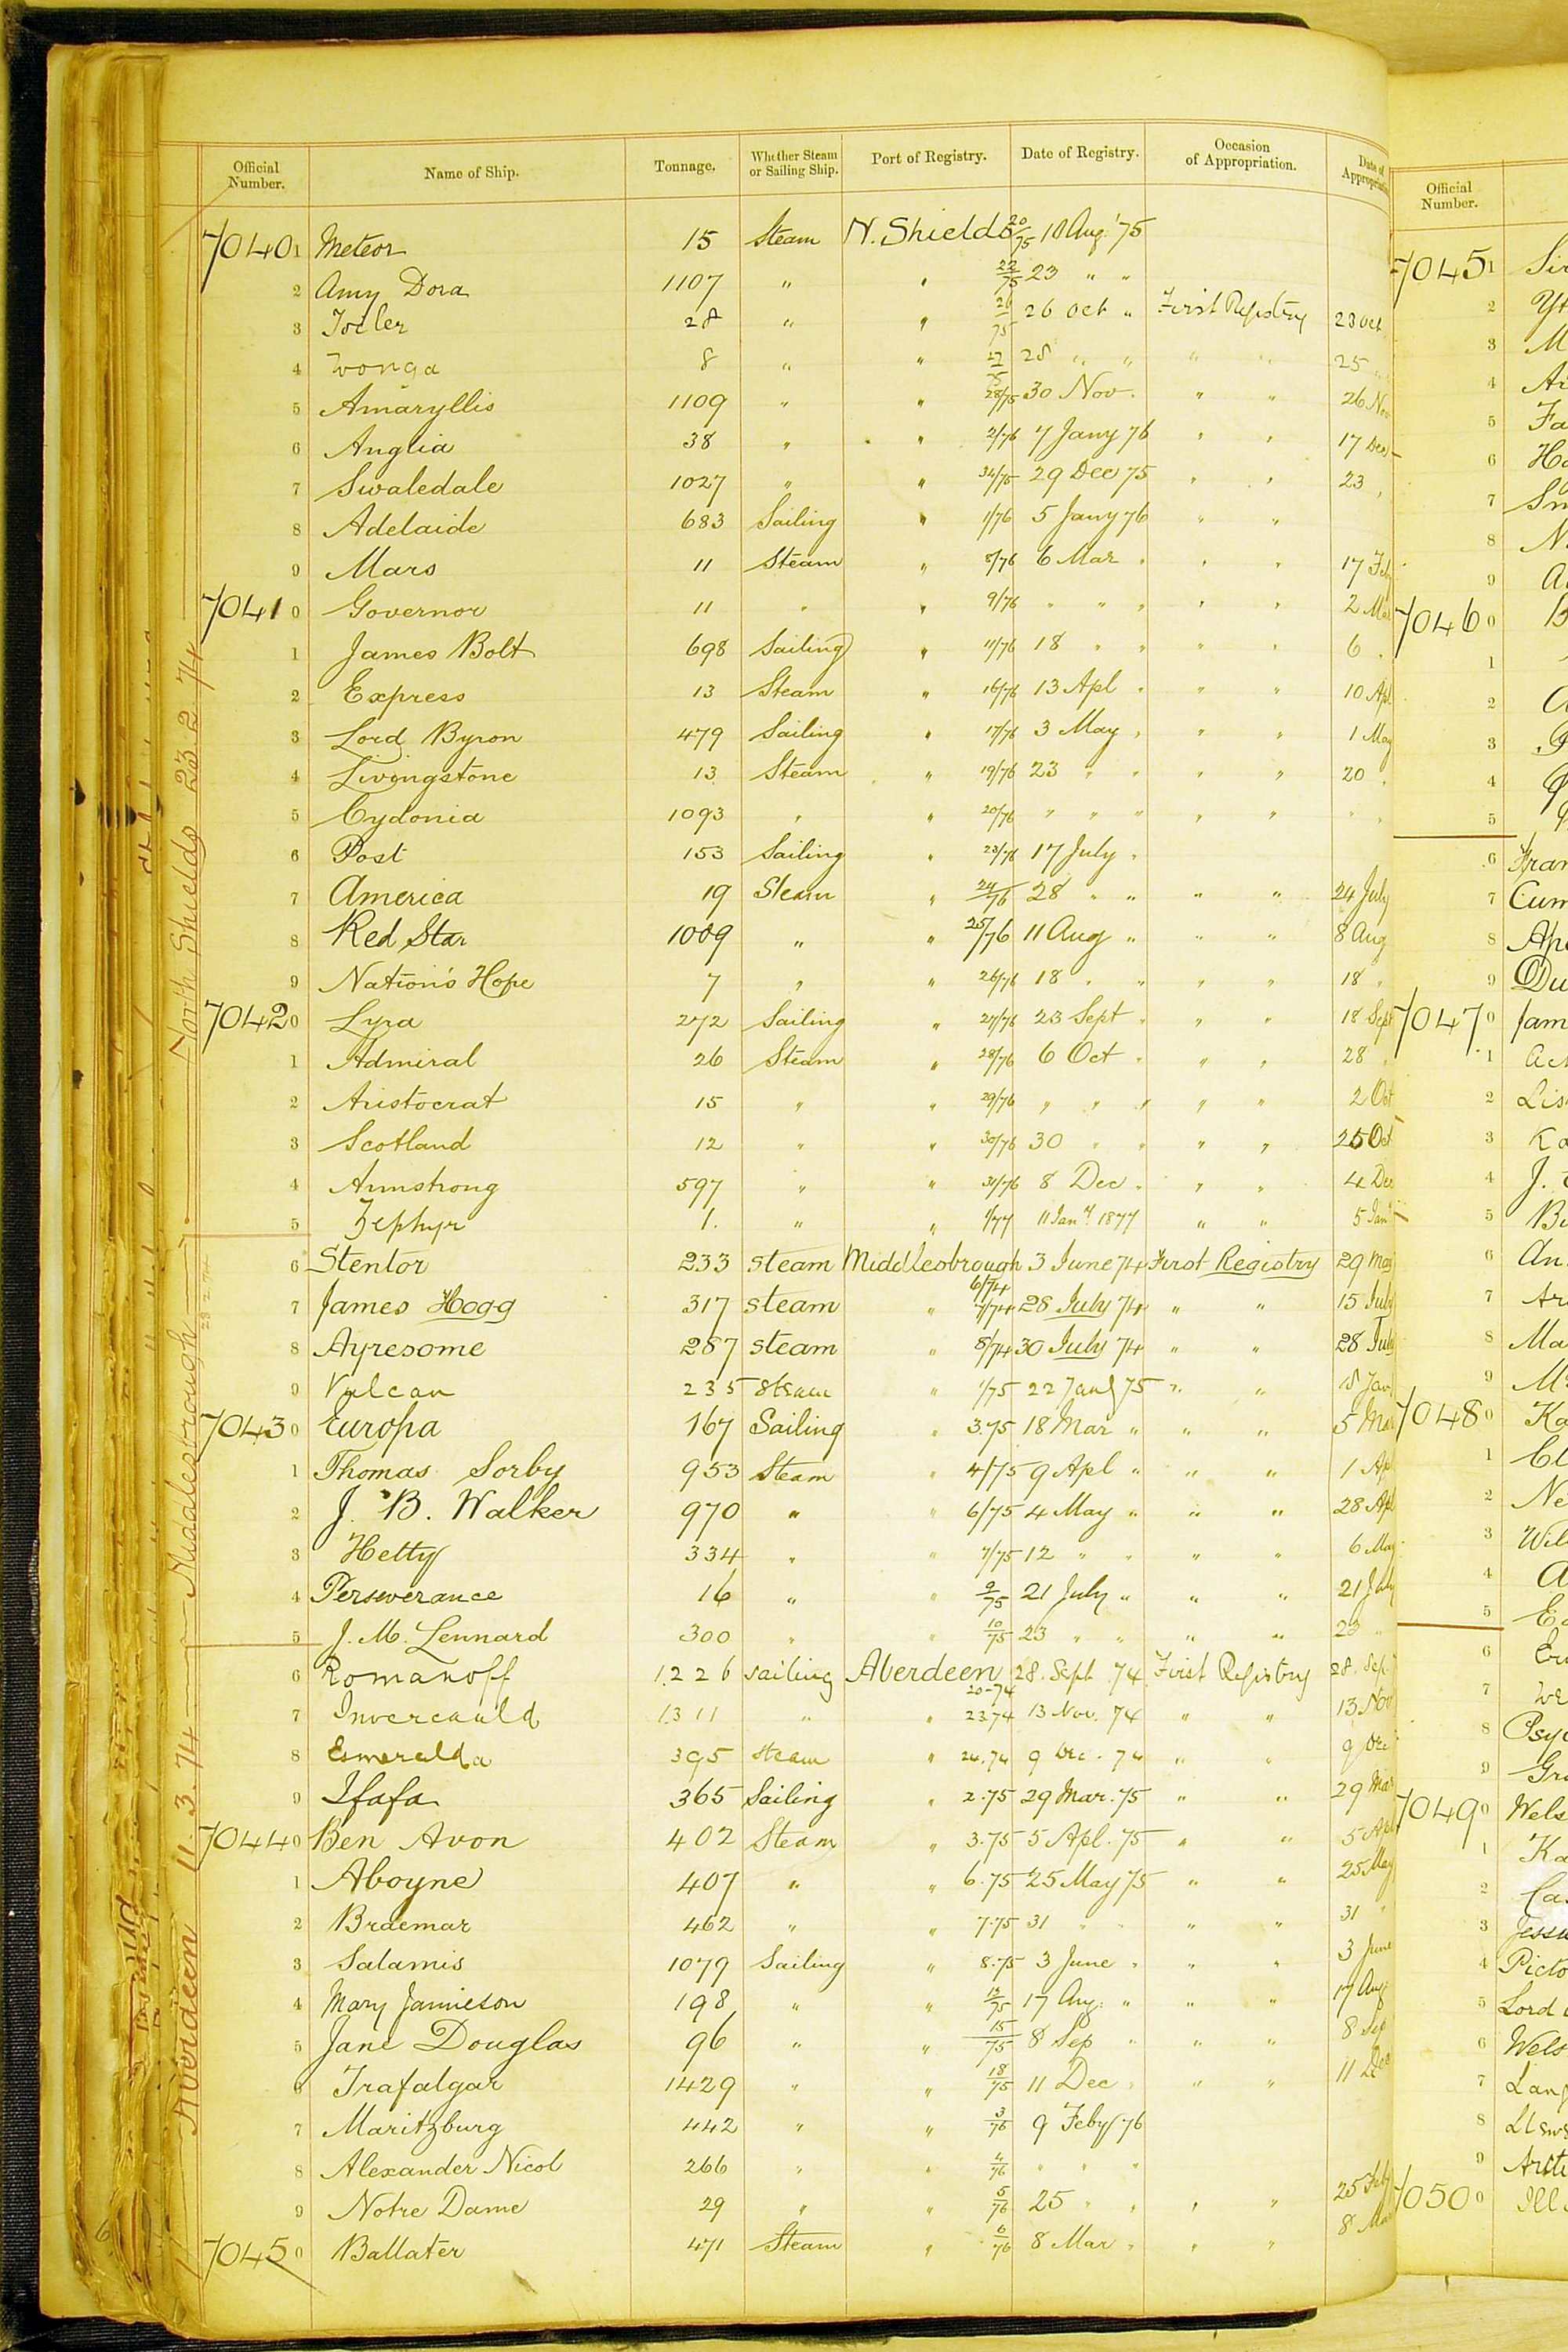 Official Number. Name of Ship. Tonnage. Whether Steam or Sailing Ship. Port of Registry. Date of Registry. Occasion of Appropriation. Date of Appropriation
70401 Meteor 15 Steam N. Shields 20/75 10 Aug '75
2 Amy Dora 1107 " " 22/75 23 " "
3 28 " " 26 Oct " First Registry 23 Oct
4 Wonga 8 " " 27/75 28 " " " " 25 "
5 Amaryllis 1109 " " 28/75 30 Nov " " " 26 Nov
6 Anglia 38 " " 2/76 7 Jany 76 " " 17 Dec
7 Swaledale 1027 " " 34/75 29 Dec 75 " " 23 "
8 Adelaide 683 Sailing " 1/76 5 Jany 76 " "
9 Mars 11 Steam " 8/76 6 Mar " " " 17 Feb
70410 Governor 11 " " 9/76 " " " " " 2 Mar
1 James Bolt 698 Sailing " 11/76 18 " " " " 6 "
2 Express 13 Steam " 16/76 13 Apl " " " 10 Apl
3 Lord Byron 479 Sailing " 17/76 3 May " " " 1 May
4 Livingstone 13 Steam " 19/76 23 " " " " 20 "
5 Cydonia 1093 " " 20/76 " " " " " " "
6 Post 153 Sailing " 23/76 17 July "
7 America 19 Steam " 24/76 28 " " " " 24 July
8 Red Star 1009 " " 25/76 11 Aug " " " 8 Aug
9 Nation's Hope 7 " " 26/76 18 " " " " 18 "
70420 Lyra 272 Sailing " 27/76 23 Sept " " " 18 Sept
1 Admiral 26 Steam " 28/76 6 Oct " " " 28 "
2 Aristocrat 15 " " 29/76 " " " " " 2 Oct
3 Scotland 12 " " 30/76 30 " " " " 25 Oct
4 Armstrong 597 " " 31/76 8 Dec " " " 4 Dec
5 Zephyr 1. " " 1/77 11 Jany 1877 " " 5 Jany
6 Stentor 233 steam Middlesbrough 6/74 3 June 74 First Registry 29 May
7 James Hogg 317 steam " 7/74 28 July 74 " " 15 July
8 Ayresome 287 steam " 8/74 30 July 74 " " 28 July
9 Vulcan 235 steam " 1/75 22 Jany 75 " " 18 Jan
70430 Europa 167 Sailing " 3.75 18 Mar " " " 5 Mar
1 Thomas Sorby 953 Steam " 4/75 9 Apl " " " 1 Apl
2 J. B. Walker 970 " " 6/75 4 May " " " 28 Apl
3 Hetty 334 " " 7/75 12 " " " " 6 May
4 Perseverance 16 " " 9/75 21 July " " " 21 July
5 J. M. Lennard 300 " " 10/75 23 " " " " 23 "
6 Romanoff 1226 sailing Aberdeen 20-74 28. Sept 74 First Registry 28. Sep.
7 Invercauld 1311 " " 23.74 13 Nov. 74 " " 13 Nov
8 Esmeralda 395 steam " 24.74 9 Dec. 74 " " 9 Dec
9 Ifafa 365 Sailing " 2.75 29 Mar. 75 " " 29 Mar
70440 Ben Avon 402 Steam " 3.75 5 Apl. 75 " " 5 Apl
1 Aboyne 407 " " 6.75 25 May 75 " " 25 May
2 Braemar 462 " " 7.75 31 " " " " 31 "
3 Salamis 1079 Sailing " 8.75 3 June " " " 3 June
4 Mary Jamieson 198 " " 17 Aug. " " " 17 Aug
5 Jane Douglas 96 " " 15/75 8 Sep " " " 8 Sep
6 Trafalgar 1429 " " 18/75 11 Dec " " " 11 Dec
7 Maritzburg 442 " " 3/76 9 Feby 76
8 Alexander Nicol 266 " " 4/76 " " "
9 Notre Dame 29 " " 5/76 25 " " " " 25 Feb
70450 Ballater 471 Steam " 6/76 8 Mar " " " 8 Mar
North Shields 23 2 74
Middlesbrough 28 2 74
Aberdeen 11. 3. 74
Official Number.
70451
2
3 M
4
5 Fa
6
7
8
9
70460 B
1
2
3
4
5
6 Fran
7 Cum
8
9 Du
70470 Jam
1
2 Lis
3 Ka
4 J.
5
6 An
7 Ar
8 Ma
9 M
70480 Ka
1
2 Ne
3 Wil
4
5
6
7
8 Psyc
9 Gr
70490 Wels
1 Ka
2 Cas
3 Jess
4 Picto
5 Lord
6 Wels
7 Lang
8
9
70500 Ill